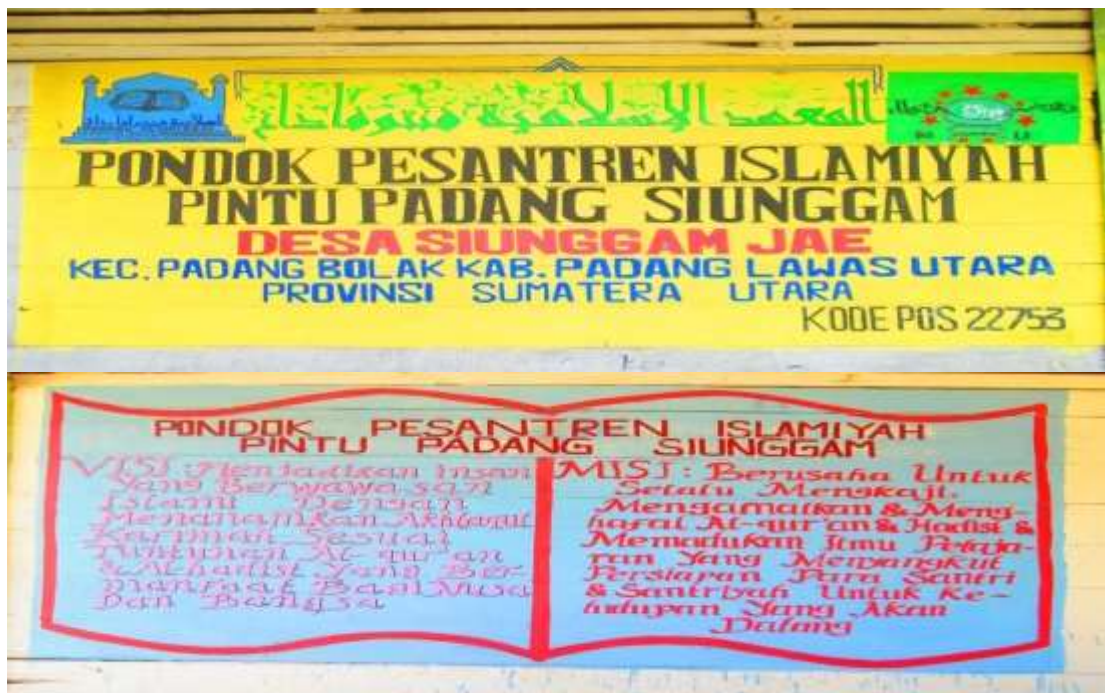 المعهد الإسلامية
PONDOK PESANTREN ISLAMIYAH
PINTU PADANG SIUNGGAM
DESA SIUNGGAM JAE
KEC. PADANG BOLAK KAB. PADANG LAWAS UTARA
PROVINSI SUMATERA UTARA
KODE POS 22753
PONDOK PESANTREN ISLAMIYAH
PINTU PADANG SIUNGGAM
VISI : Menjadikan Insan
Yang Berwawasan
Islami Dengan
Menanamkan Akhlakul
Karimah Sesuai
Tuntunan Al-qur'an
& Alhadist Yang Ber
manfaat Bagi Nusa
Dan Bangsa
MISI : Berusaha Untuk
Selalu Mengkaji,
Mengamalkan & Meng-
hafal Al-qur'an & Hadist &
Memadukan Ilmu Pelaja-
ran Yang Menyangkut
Persiapan Para Santri
& Santriyah Untuk Ke-
hidupan Yang Akan
Datang